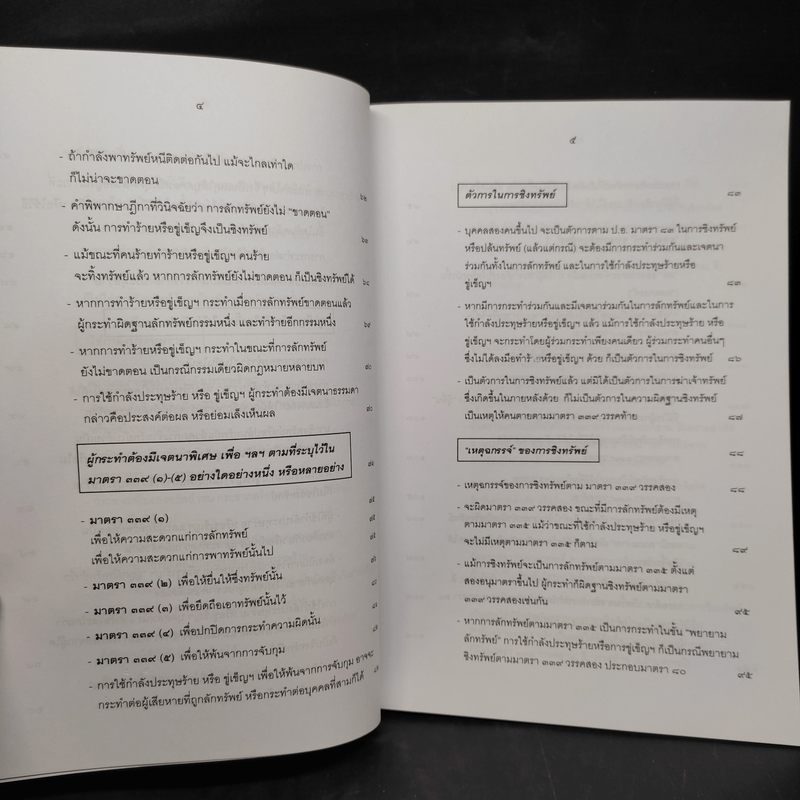 ๔
- ถ้ากำลังพาทรัพย์หนีติดต่อกันไป แม้จะไกลเท่าใด
ก็ไม่น่าจะขาดตอน
๖๒
- คำพิพากษาฎีกาที่วินิจฉัยว่า การลักทรัพย์ยังไม่ "ขาดตอน"
ดังนั้น การทำร้ายหรือขู่เข็ญจึงเป็นชิงทรัพย์
- แม้ขณะที่คนร้ายทำร้ายหรือขู่เข็ญฯ คนร้าย
จะทิ้งทรัพย์แล้ว หากการลักทรัพย์ยังไม่ขาดตอน ก็เป็นชิงทรัพย์ได้
- หากการทำร้ายหรือขู่เข็ญฯ กระทำเมื่อการลักทรัพย์ขาดตอนแล้ว
ผู้กระทำผิดฐานลักทรัพย์กรรมหนึ่ง และทำร้ายอีกกรรมหนึ่ง
- หากการทำร้ายหรือขู่เข็ญฯ กระทำในขณะที่การลักทรัพย์
ยังไม่ขาดตอน เป็นกรณีกรรมเดียวผิดกฎหมายหลายบท
- การใช้กำลังประทุษร้าย หรือ ขู่เข็ญฯ ผู้กระทำต้องมีเจตนาธรรมดา
กล่าวคือประสงค์ต่อผล หรือย่อมเล็งเห็นผล
ผู้กระทำต้องมีเจตนาพิเศษ เพื่อ ฯลฯ ตามที่ระบุไว้ใน
มาตรา ๓๓๙ (๑)-(๕) อย่างใดอย่างหนึ่ง หรือหลายอย่าง
- มาตรา ๓๓๙ (๑)
เพื่อให้ความสะดวกแก่การลักทรัพย์
เพื่อให้ความสะดวกแก่การพาทรัพย์นั้นไป
- มาตรา ๓๓๙ (๒) เพื่อให้ยื่นให้ซึ่งทรัพย์นั้น
- มาตรา ๓๓๙ (๓) เพื่อยึดถือเอาทรัพย์นั้นไว้
- มาตรา ๓๓๙ (๔) เพื่อปกปิดการกระทำความผิดนั้น
- มาตรา ๓๓๙ (๕) เพื่อให้พ้นจากการจับกุม
- การใช้กำลังประทุษร้าย หรือ ขู่เข็ญฯ เพื่อให้พ้นจากการจับกุม อาจจะ
กระทำต่อผู้เสียหายที่ถูกลักทรัพย์ หรือกระทำต่อบุคคลที่สามก็ได้
๕
ตัวการในการชิงทรัพย์ ๘๓
- บุคคลสองคนขึ้นไป จะเป็นตัวการตาม ป.อ. มาตรา ๘๓ ในการชิงทรัพย์
หรือปล้นทรัพย์ (แล้วแต่กรณี) จะต้องมีการกระทำร่วมกันและเจตนา
ร่วมกันทั้งในการลักทรัพย์ และในการใช้กำลังประทุษร้ายหรือ
ขู่เข็ญฯ ๘๓
- หากมีการกระทำร่วมกันและมีเจตนาร่วมกันในการลักทรัพย์และในการ
ใช้กำลังประทุษร้ายหรือขู่เข็ญฯ แล้ว แม้การใช้กำลังประทุษร้าย หรือ
ขู่เข็ญฯ จะกระทำโดยผู้ร่วมกระทำเพียงคนเดียว ผู้ร่วมกระทำคนอื่นๆ
ซึ่งไม่ได้ลงมือทำร้ายหรือขู่เข็ญฯ ด้วย ก็เป็นตัวการในการชิงทรัพย์ ๘๖
- เป็นตัวการในการชิงทรัพย์แล้ว แต่มิได้เป็นตัวการในการฆ่าเจ้าทรัพย์
ซึ่งเกิดขึ้นในภายหลังด้วย ก็ไม่เป็นตัวการในความผิดฐานชิงทรัพย์
เป็นเหตุให้คนตายตามมาตรา ๓๓๙ วรรคท้าย ๘๗
"เหตุฉกรรจ์" ของการชิงทรัพย์ ๘๘
- เหตุฉกรรจ์ของการชิงทรัพย์ตาม มาตรา ๓๓๙ วรรคสอง ๘๘
- จะผิดมาตรา ๓๓๙ วรรคสอง ขณะที่มีการลักทรัพย์ต้องมีเหตุ
ตามมาตรา ๓๓๕ แม้ว่าขณะที่ใช้กำลังประทุษร้าย หรือขู่เข็ญฯ
จะไม่มีเหตุตามมาตรา ๓๓๕ ก็ตาม ๘๙
- แม้การชิงทรัพย์จะเป็นการลักทรัพย์ตามมาตรา ๓๓๕ ตั้งแต่
สองอนุมาตราขึ้นไป ผู้กระทำก็ผิดฐานชิงทรัพย์ตามมาตรา
๓๓๙ วรรคสองเช่นกัน ๙๕
- หากการลักทรัพย์ตามมาตรา ๓๓๕ เป็นการกระทำในขั้น "พยายาม
ลักทรัพย์" การใช้กำลังประทุษร้ายหรือการขู่เข็ญฯ ก็เป็นกรณีพยายาม
ชิงทรัพย์ตามมาตรา ๓๓๙ วรรคสอง ประกอบมาตรา ๘๐ ๙๕